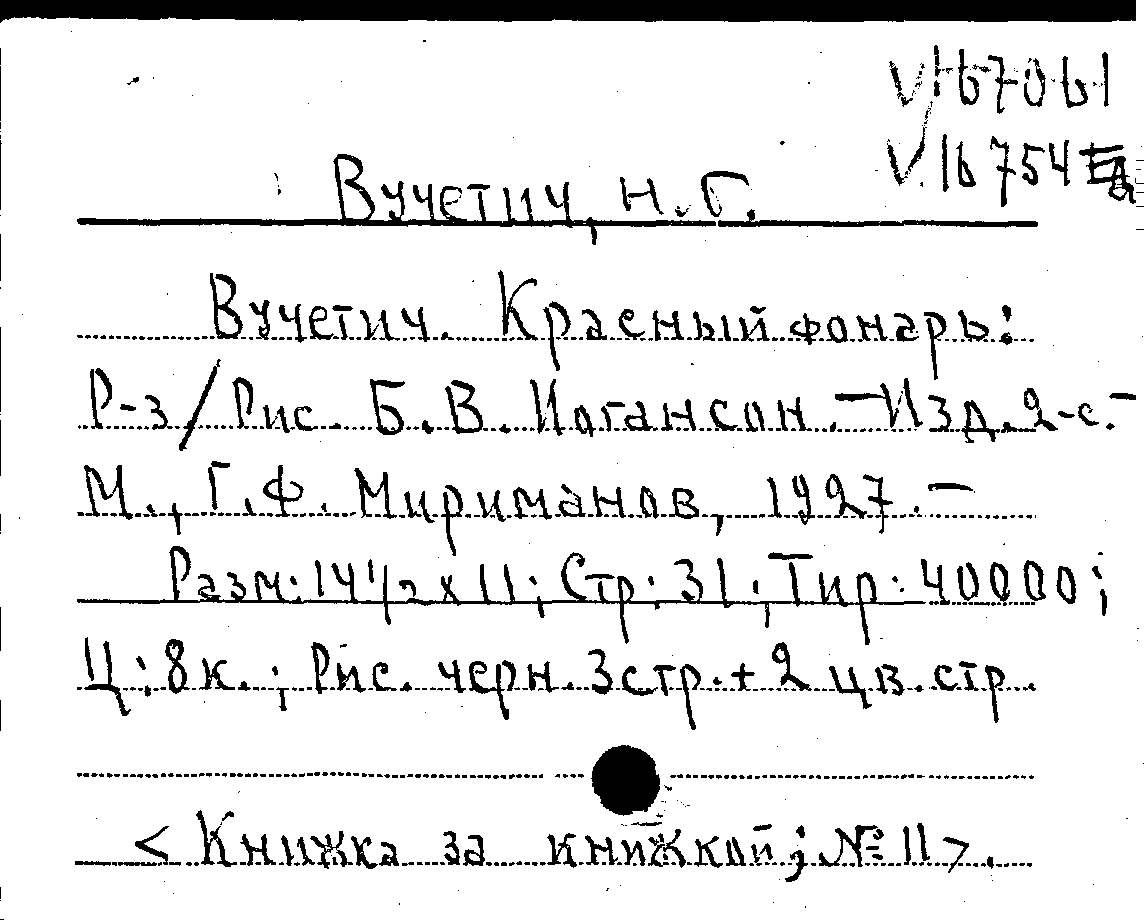 V167061
V.16754
Вучетич, Н.Г.
Вучетич. Красный фонарь:
Р-з/Рис. Б.В. Иогансон. – Изд. 2-е. –
М., Г.Ф. Мириманов, 1927. –
Разм: 14 1/2 x 11; Стр: 31; Тир: 40000;
Ц: 8к.; Рис. черн. 3стр. + 2 цв. стр.
< Книжка за книжкой; № 11 >.